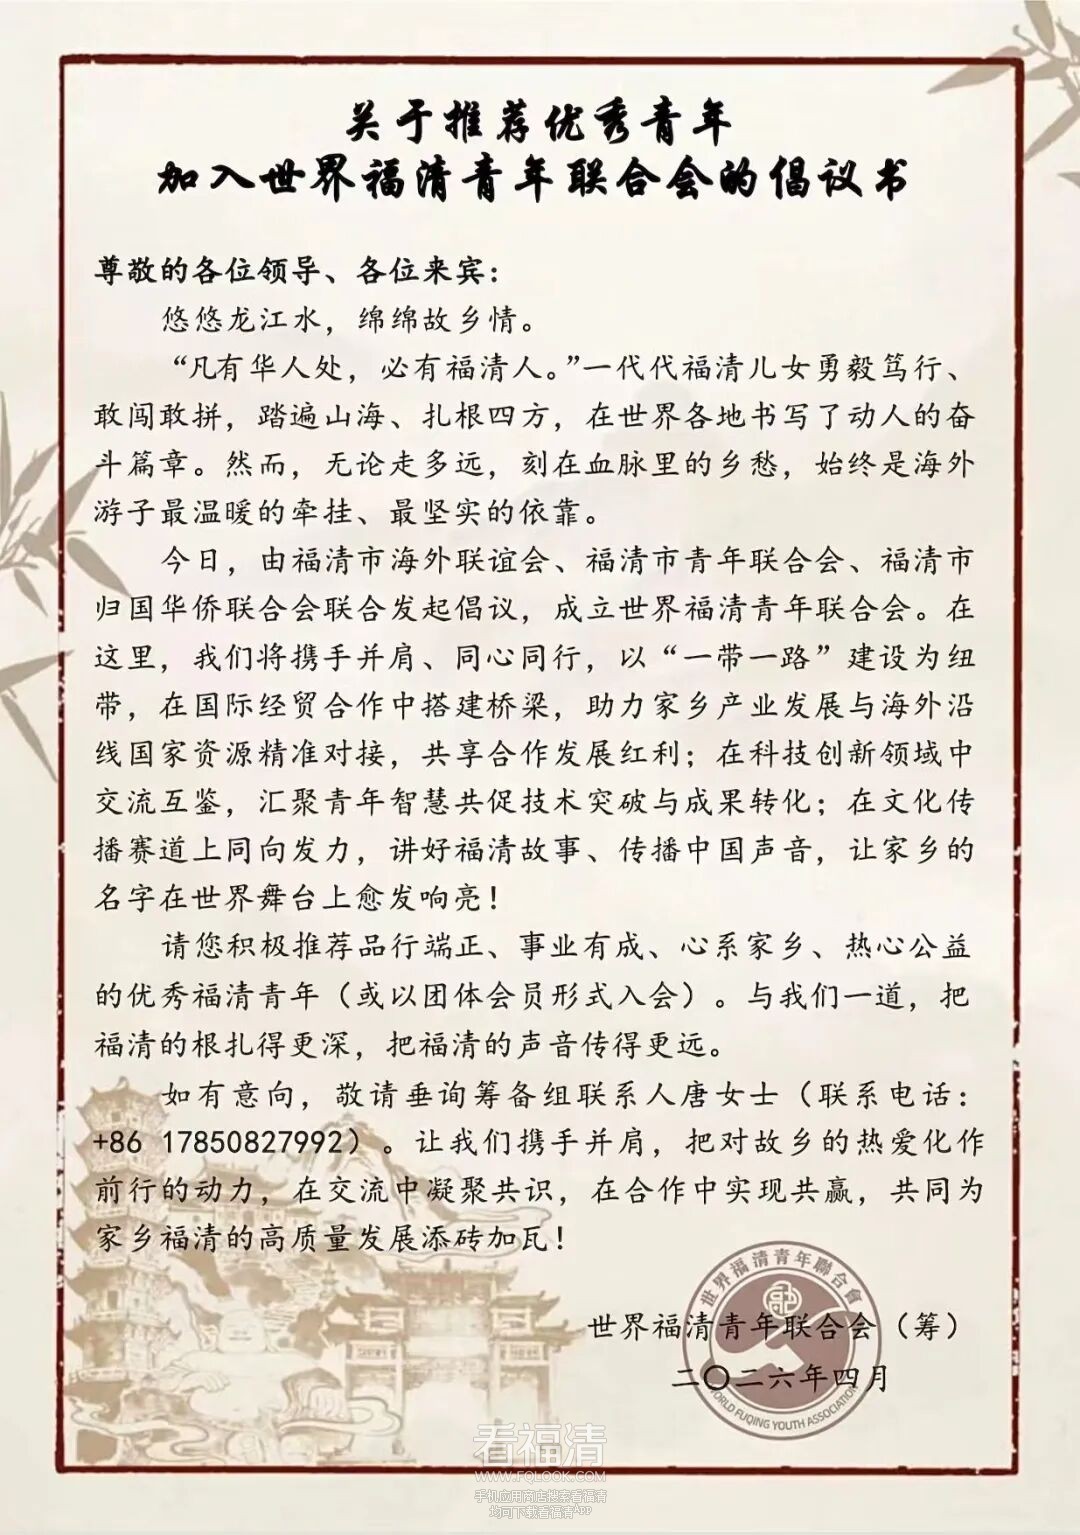 关于推荐优秀青年
加入世界福清青年联合会的倡议书
尊敬的各位领导、各位来宾：
悠悠龙江水，绵绵故乡情。
“凡有华人处，必有福清人。”一代代福清儿女勇毅笃行、
敢闯敢拼，踏遍山海、扎根四方，在世界各地书写了动人的奋
斗篇章。然而，无论走多远，刻在血脉里的乡愁，始终是海外
游子最温暖的牵挂、最坚实的依靠。
今日，由福清市海外联谊会、福清市青年联合会、福清市
归国华侨联合会联合发起倡议，成立世界福清青年联合会。在
这里，我们将携手并肩、同心同行，以“一带一路”建设为纽
带，在国际经贸合作中搭建桥梁，助力家乡产业发展与海外沿
线国家资源精准对接，共享合作发展红利；在科技创新领域中
交流互鉴，汇聚青年智慧共促技术突破与成果转化；在文化传
播赛道上同向发力，讲好福清故事、传播中国声音，让家乡的
名字在世界舞台上愈发响亮！
请您积极推荐品行端正、事业有成、心系家乡、热心公益
的优秀福清青年（或以团体会员形式入会）。与我们一道，把
福清的根扎得更深，把福清的声音传得更远。
如有意向，敬请垂询筹备组联系人唐女士（联系电话：
+86 17850827992）。让我们携手并肩，把对故乡的热爱化作
前行的动力，在交流中凝聚共识，在合作中实现共赢，共同为
家乡福清的高质量发展添砖加瓦！
世界福清青年聯合會
世界福清青年联合会（筹）
二〇二六年四月
WORLD FUQING YOUTH ASSOCIATION
看福清
WWW.FQLOOK.COM
手机应用商店搜索看福清
均可下载看福清App